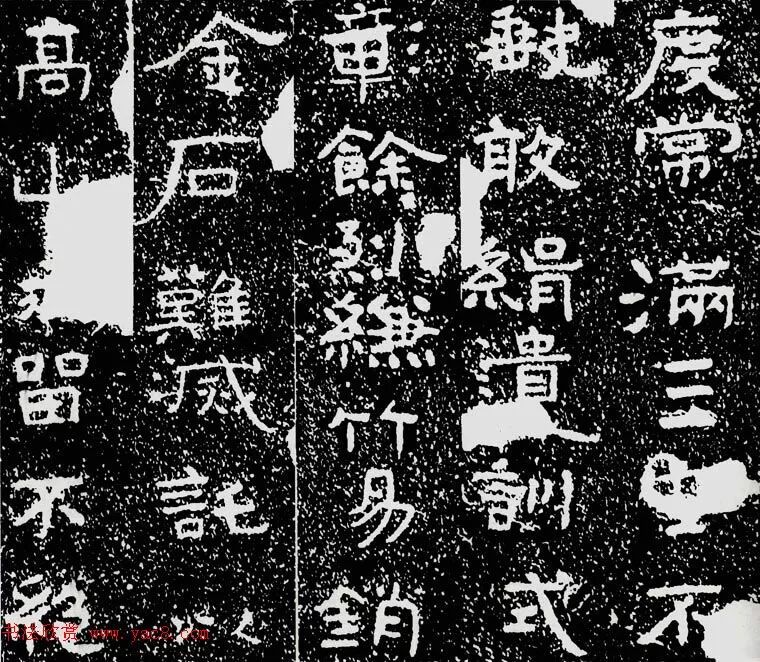 度常滿三不
敢絹遺訓式
章餘烈縑竹易銷
金石難滅託以
高山永留不絕
书法欣赏 www.yac8.com